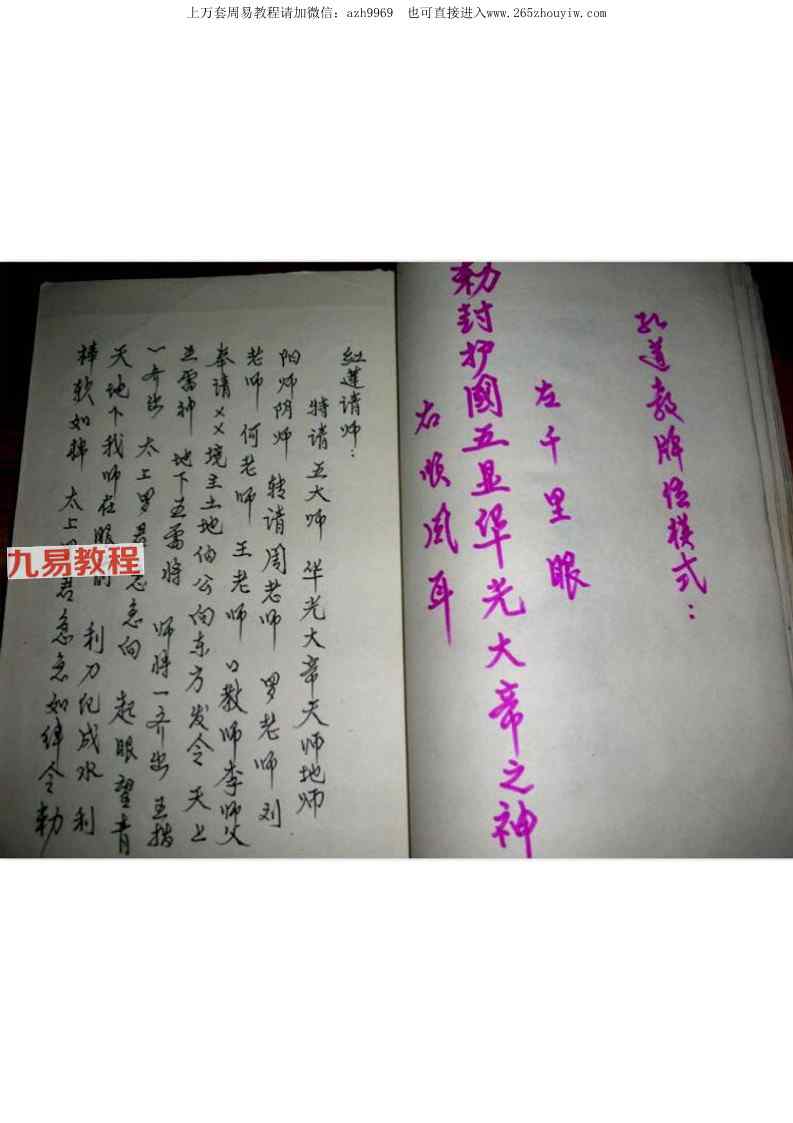 上万套周易教程请加微信：azh9969　也可直接进入www.265zhouyiw.com
孔道教牌位模式：
左千里眼
勅封护國五显华光大帝之神
右顺风耳
红莲请师：
特请五大师 华光大帝天师地师
阳师阴师 转请周老师 罗老师刘
老师 何老师 王老师 口教师李师父
奉请××境主土地伯公向东方发令 天上
五雷神 地下五雷将 师将一齐出 五指
一齐出 太上 急向 起眼望青
天地下我师在眼前 利刀化成水 利
棒软如绵 太上 君急急如律令勅
九易教程